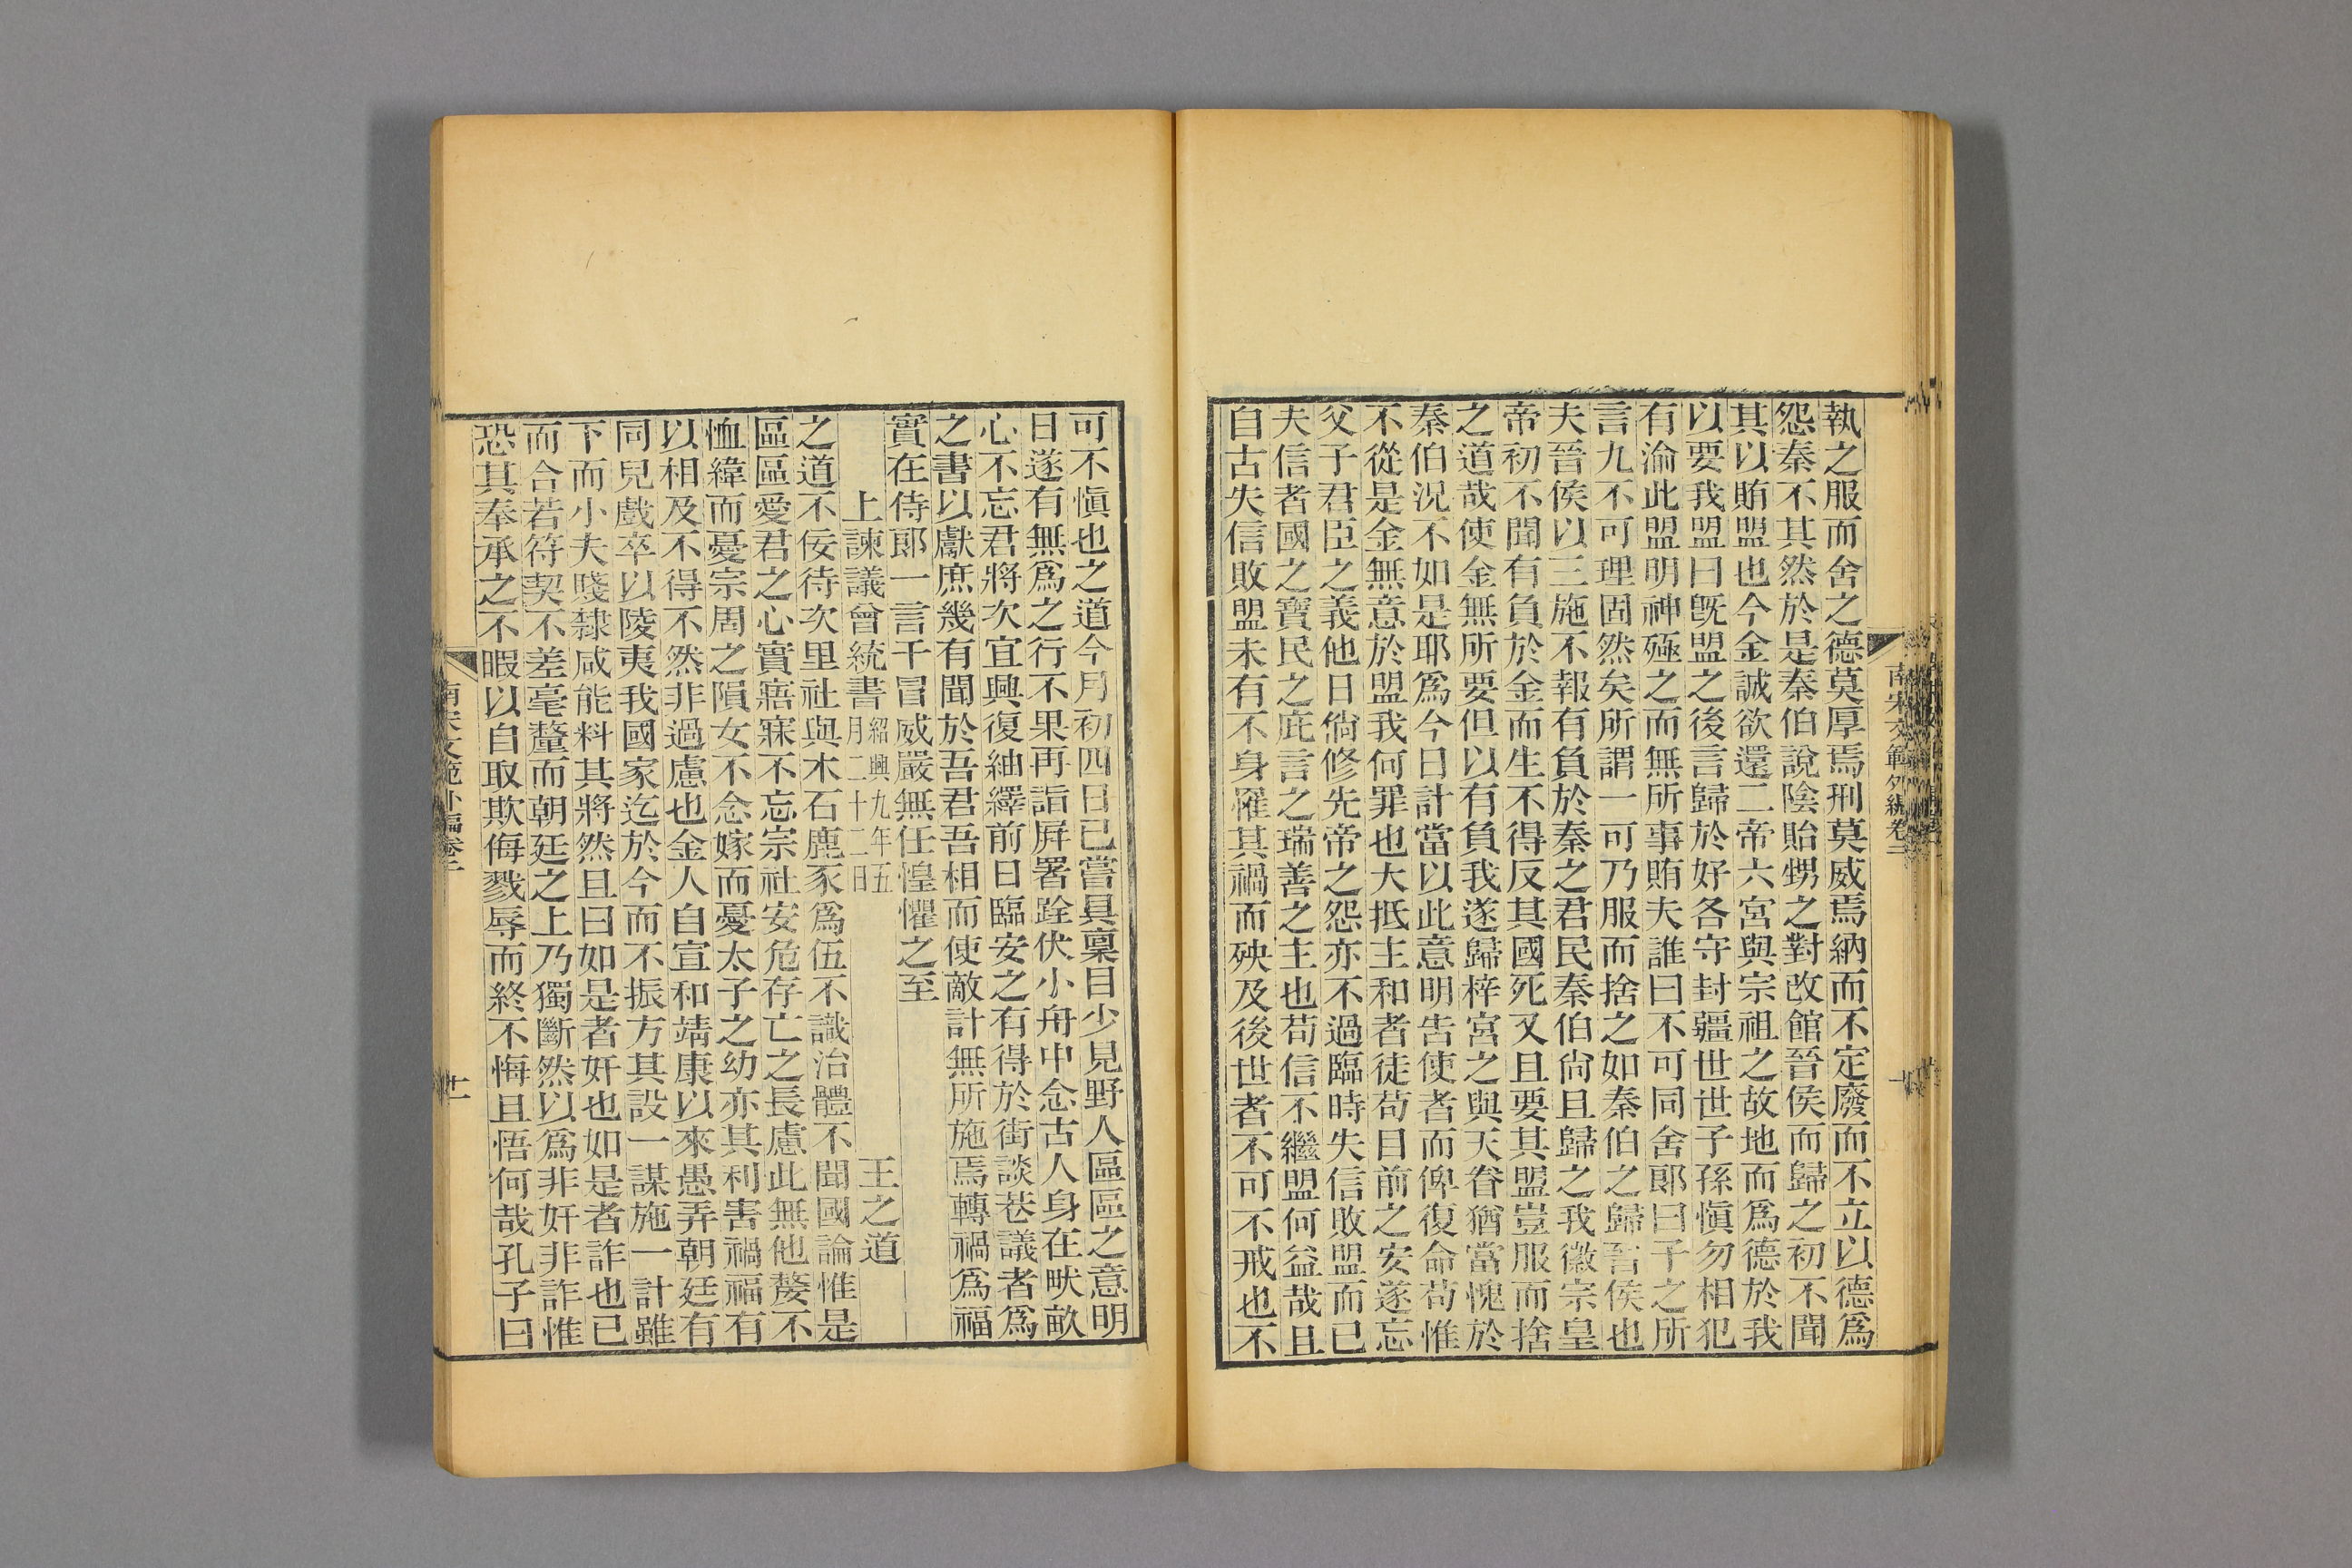 南宋文範外編卷二
執之服而舍之德莫厚焉刑莫威焉納而不定廢而不立以德爲
怨秦不其然於是秦伯說陰貽甥之對改館晉侯而歸之初不聞
其以賄盟也今金誠欲還二帝六宮與宗祖之故地而爲德於我
以要我盟曰旣盟之後言歸於好各守封疆世世子孫愼勿相犯
有渝此盟明神殛之而無所事賄夫誰曰不可同舍郞曰子之所
言九不可理固然矣所謂一可乃服而捨之如秦伯之歸晉侯也
夫晉侯以三施不報有負於秦之君民秦伯尙且歸之我徽宗皇
帝初不聞有負於金而生不得反其國死又且要其盟豈服而捨
之道哉使金無所要但以有負我遂歸梓宮之與天眷猶當愧於
秦伯況不如是耶爲今日計當以此意明告使者而俾復命苟惟
不從是金無意於盟我何罪也大抵主和者徒苟目前之安遂忘
父子君臣之義他日倘修先帝之怨亦不過臨時失信敗盟而已
夫信者國之寶民之庇言之瑞善之主也苟信不繼盟何益哉且
自古失信敗盟未有不身罹其禍而殃及後世者不可不戒也不
可不愼也之道今月初四日已嘗具稟目少見野人區區之意明
日遂有無爲之行不果再詣屛署跧伏小舟中念古人身在畎畝
心不忘君將次宜興復紬繹前日臨安之有得於街談巷議者爲
之書以獻庶幾有聞於吾君吾相而使敵計無所施焉轉禍爲福
實在侍郞一言干冒威嚴無任惶懼之至
上諫議曾統書 紹興九年五月二十二日 王之道
之道不佞待次里社與木石鹿豕爲伍不識治體不聞國論惟是
區區愛君之心實寤寐不忘宗社安危存亡之長慮此無他嫠不
恤緯而憂宗周之隕女不念嫁而憂太子之幼亦其利害禍福有
以相及不得不然非過慮也金人自宣和靖康以來愚弄朝廷有
同兒戲卒以陵夷我國家迄於今而不振方其設一謀施一計雖
下而小夫賤隸咸能料其將然且曰如是者奸也如是者詐也已
而合若符契不差毫釐而朝廷之上乃獨斷然以爲非奸非詐惟
恐其奉承之不暇以自取欺侮戮辱而終不悔且悟何哉孔子曰
南宋文範外編卷二